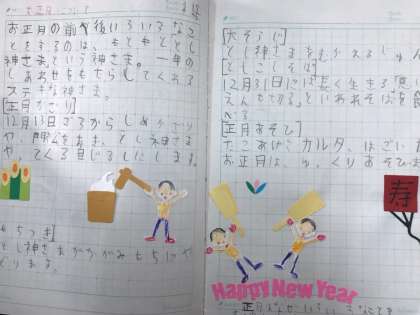 お正月の前や後いろいろなこ
とをするのは、もともととし
神さまという神さま。一年の
しあわせをもちらしてくれる
ステキな神さま。
[正月かざり]
12月13日ごろからしめかざり
や、門松をおき、とし神さま
や てくる目じるしにします。
もちつき]
とし神さまが かがみもちにや
どります。
[大そうじ]
とし神さまをむかえるじゅん
[としこしそば]
12月31日には長く生きる
えんぎする といわれそばを
べる。
[正月あそび]
たこあげ、カルタ、はごい
お正月は、ゆっくりあそび
寿
Happy New Year